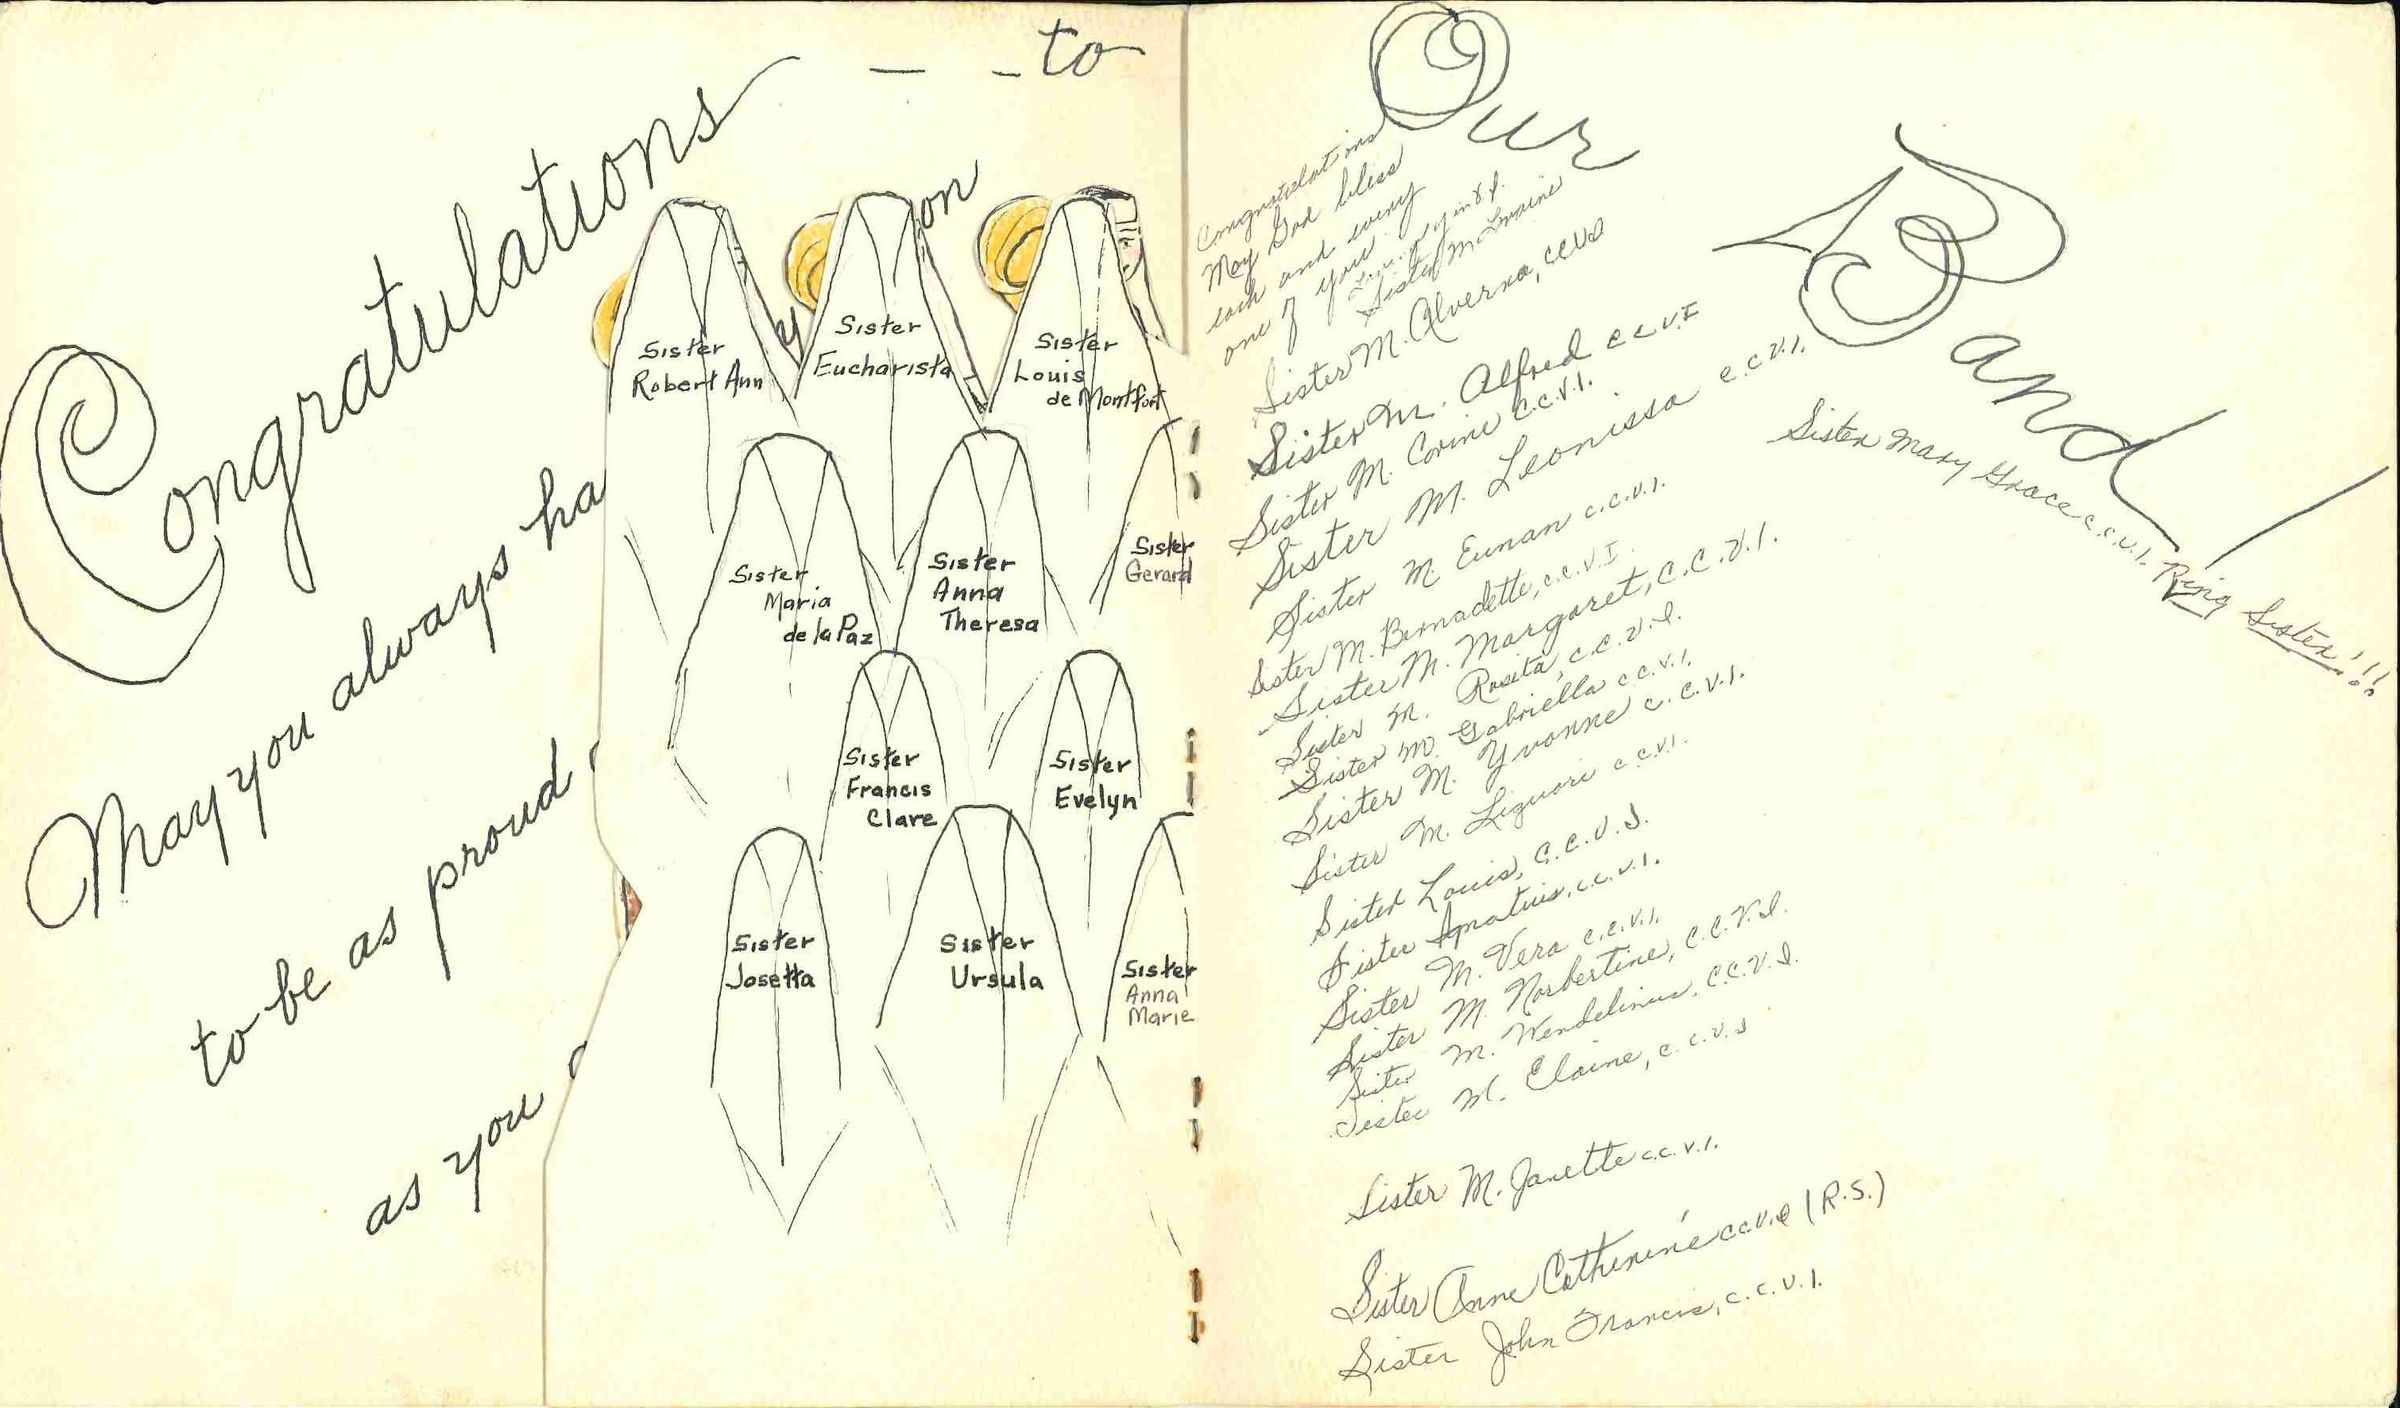 Congratulations — - to
May you always ha
to be as proud
as you
y
on
Sister
Robert Ann
Sister
Eucharista
Sister
Louis
de Montfort
Sister
Maria
de la Paz
Sister
Anna
Theresa
Sister
Gerard
Sister
Francis
Clare
Sister
Evelyn
Sister
Josetta
Sister
Ursula
Sister
Anna
Marie
Our
Band!
Congratulations
May God bless
each and every
one of you.
Sister M. Lorraine
Sister M. Alverna, CCVI
Sister M. Alfred C C V.I
Sister M. Corine C.C.V.I.
Sister M. Leonissa C.C.V.I.
Sister M. Eunan C.C.V.I.
Sister M. Bernadette, C.C.V.I.
Sister M. Margaret, C.C.V.I.
Sister M. Rosita, C.C.V.I.
Sister M. Gabriella C.C.V.I.
Sister M. Yvonne C.C.V.I.
Sister M. Liguori C.C.V.I.
Sister Louis, C.C.V.I.
Sister Ignatius, C.C.V.I.
Sister M. Vera C.C.V.I.
Sister M. Norbertine, C.C.V.I.
Sister M. Wendelinus, C.C.V.I.
Sister M. Elaine, C.C.V.I
Sister M. Janette C.C.V.I.
Sister Anne Catherine CCVI (R.S.)
Sister John Francis, C.C.V.I.
Sister Mary Grace C.C.V.I. Ring Sister!!!